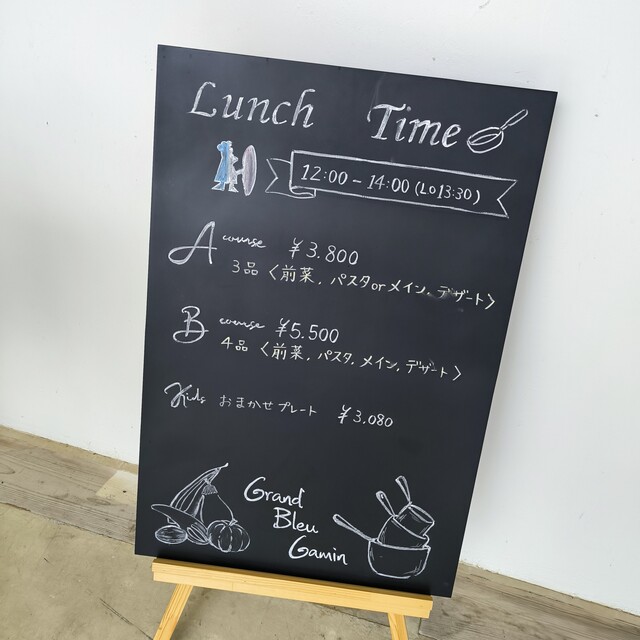 Lunch Time
12:00 - 14:00 (LO 13:30)
A course ¥3.800
3品〈前菜, パスタorメイン, デザート〉
B course ¥5.500
4品〈前菜, パスタ, メイン, デザート〉
Kids おまかせプレート ¥3,080
Grand
Bleu
Gamin